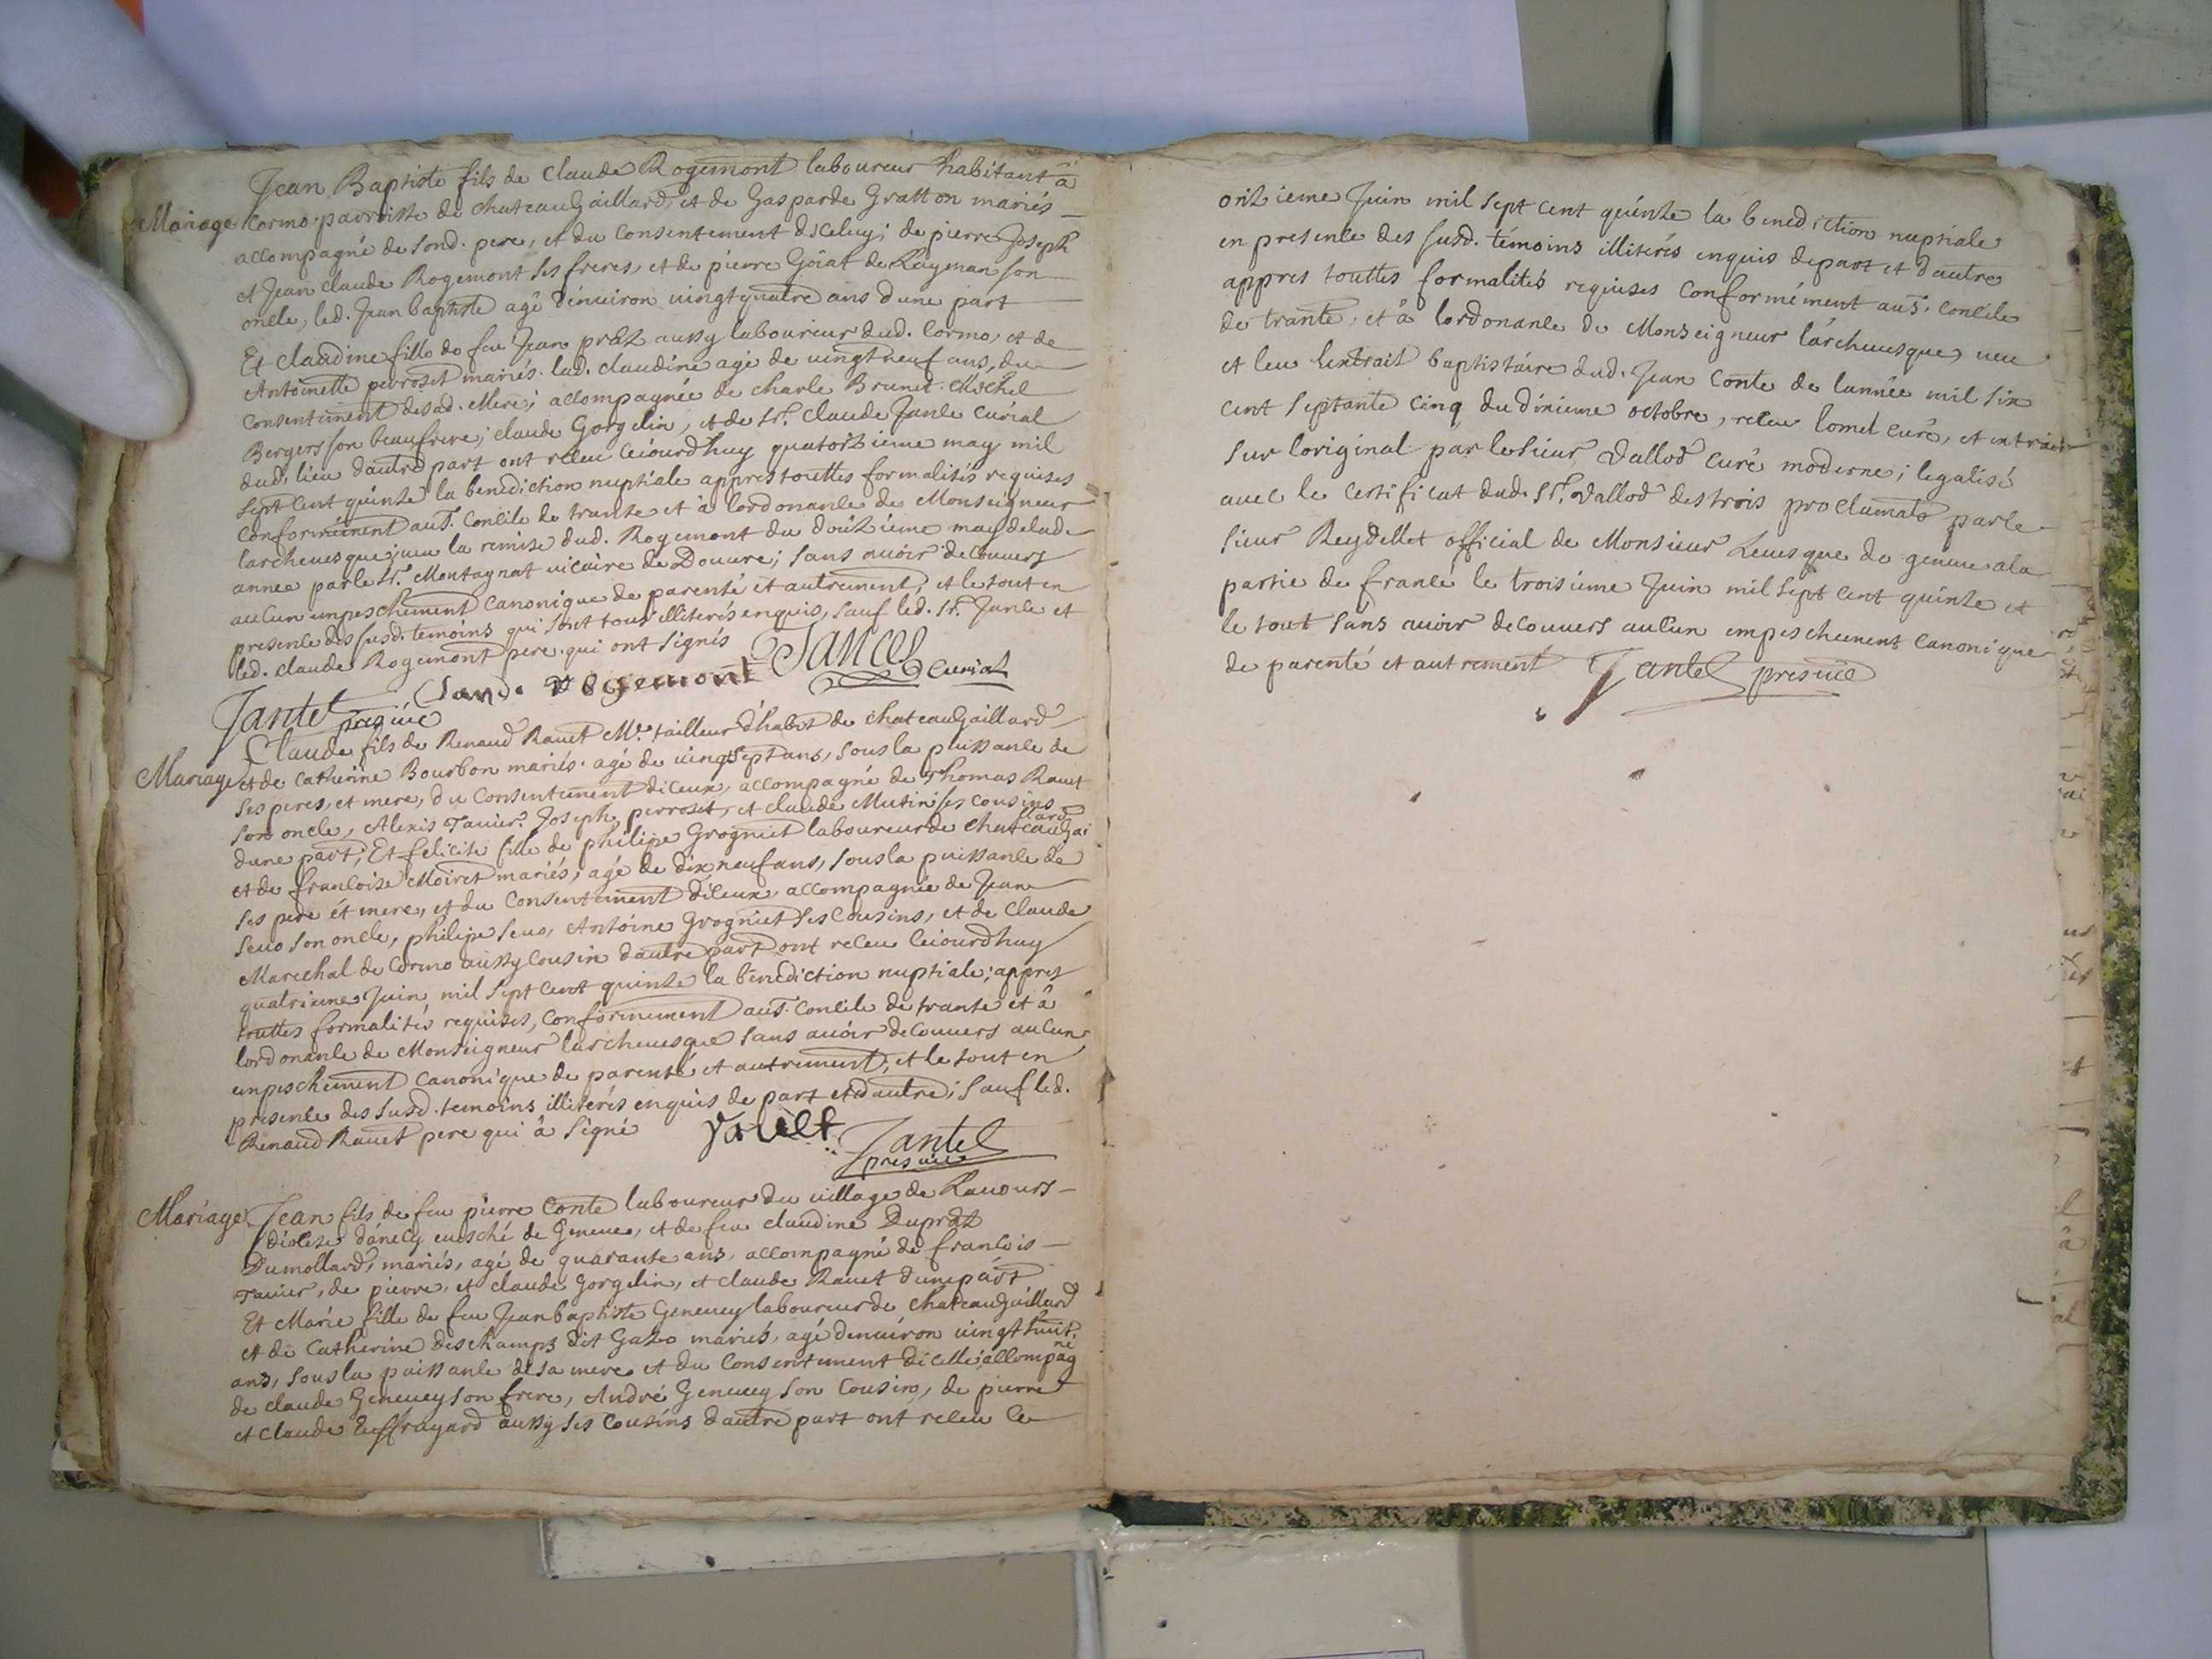 Jean Baptiste fils de claude Rogemont laboureur habitant â
Mariage Cormo parroisse de chateauGaillard, et de Gasparde Gratton mariés
accompagné de sond. pere, et du consentement diceluy; de pierre Joseph
et Jean claude Rogemont ses freres, et de pierre Goiat de Layman son
oncle, led. Jean baptiste agé d'enuiron uingtquatre ans dune part
Et claudine fille de feu Jean prâz aussy laboureur dud. Cormo, et de
Antoinette perroset mariés. lad. claudine agé de uingtneuf ans, du
consentement desad. Mere; accompagnée de charle Brunet. Michel
Bergers son beaufrere; claude Gorgelin, et de Sr. Claude Janle curial
dud. lieu dautre part ont receu ceiourdhuy quatorzieme may mil
sept cent quinze la benediction nuptiale appres touttes formalités requises
conformément au St. concile de trante et à lordonance de Monseigneur
larcheuesque; ueu la remise dud. Rogemont du douzieme may delad.
annee par le Sr. Montagnat uicaire de Douure; sans auoir decouuers
aucun empeschement canonique de parenté et autrement, et le tout en
presence des susd. temoins qui sont tous illiterés enquis, sauf led. Sr. Janle et
led. claude Rogemont pere qui ont signés
Jances curial
Claude rogemont
Jantet presuic
Claude fils de Renaud Rauet Me. tailleur d'habit de chateauGaillard
Mariage et de Catherine Bourbon mariés. agé de uingtsept ans, sous la puissance de
ses peres, et mere, du consentement diceux, accompagné de Thomas Rauet
son oncle, Alexis Tauier. Joseph perroset, et claude Mutin ses cousins
dune part; Et felicite fille de philipe Grogniet laboureur de chateauGai
llard
et de francoise Moiret mariés, agé de dix neuf ans, sous la puissance de
ses pere et mere, et du consentement diceux, accompagnée de Jean
Seuo son oncle, philipe Seuo, Antoine Grogniet ses cousins, et de Claude
Marechal de Cormo aussy cousin dautre part ont receu ceiourdhuy
quatrieme Juin mil sept cent quinze la benediction nuptiale; appres
touttes formalités requises, conformement au St. concile de trante et â
lordonance de Monseigneur larcheuesque sans auoir decouuers aucun
empeschement canonique de parenté et autrement, et le tout en
presence des susd. temoins illiterés enquis de part et dautre; sauf led.
Renaud Rauet pere qui â signé
Jantet presuic
Mariage Jean fils de feu pierre Conte laboureur du uillage de Lauours
diocese dânecy euesché de Geneue, et de feu claudine Duprâz
Dumollard, mariés, agé de quarante ans, accompagné de francois
Tauier, de pierre, et claude Gorgelin, et claude Rauet dune part
Et Marie fille de feu Jean baptiste Geneuey laboureur de chateauGaillard
et de Catherine Deschamps dit Gazo mariés, agé denuiron uingt huit
ans, sous la puissance de sa mere et du consentement dicelle; accompag
né
de claude Geneuey son frere, André Geneuey son cousin, de pierre
et claude Leffrayard aussy ses cousins dautre part ont receu le
onzieme Juin mil sept cent quinze la benediction nuptiale
en presence des susd. témoins illiterés enquis de part et dautre
appres touttes formalités requises conformément au St. concile
de trante, et â lordonance de Monseigneur lárcheuesque, ueu
et leu lextrait baptistaire dud. Jean Conte de lannée mil six
cent septante cinq du dixieme octobre, receu Comel curé, et extrait
sur loriginal par le sieur Vallod curé moderne; legalisé
auec le certificat dud. Sr. Vallod des trois proclamats par le
sieur Reydellet official de Monsieur Leuesque de geneue a la
partie de france le troisieme Juin mil sept cent quinze et
le tout sans auoir decouuers aucun empeschement canonique
de parenté et autrement Jantet presuic